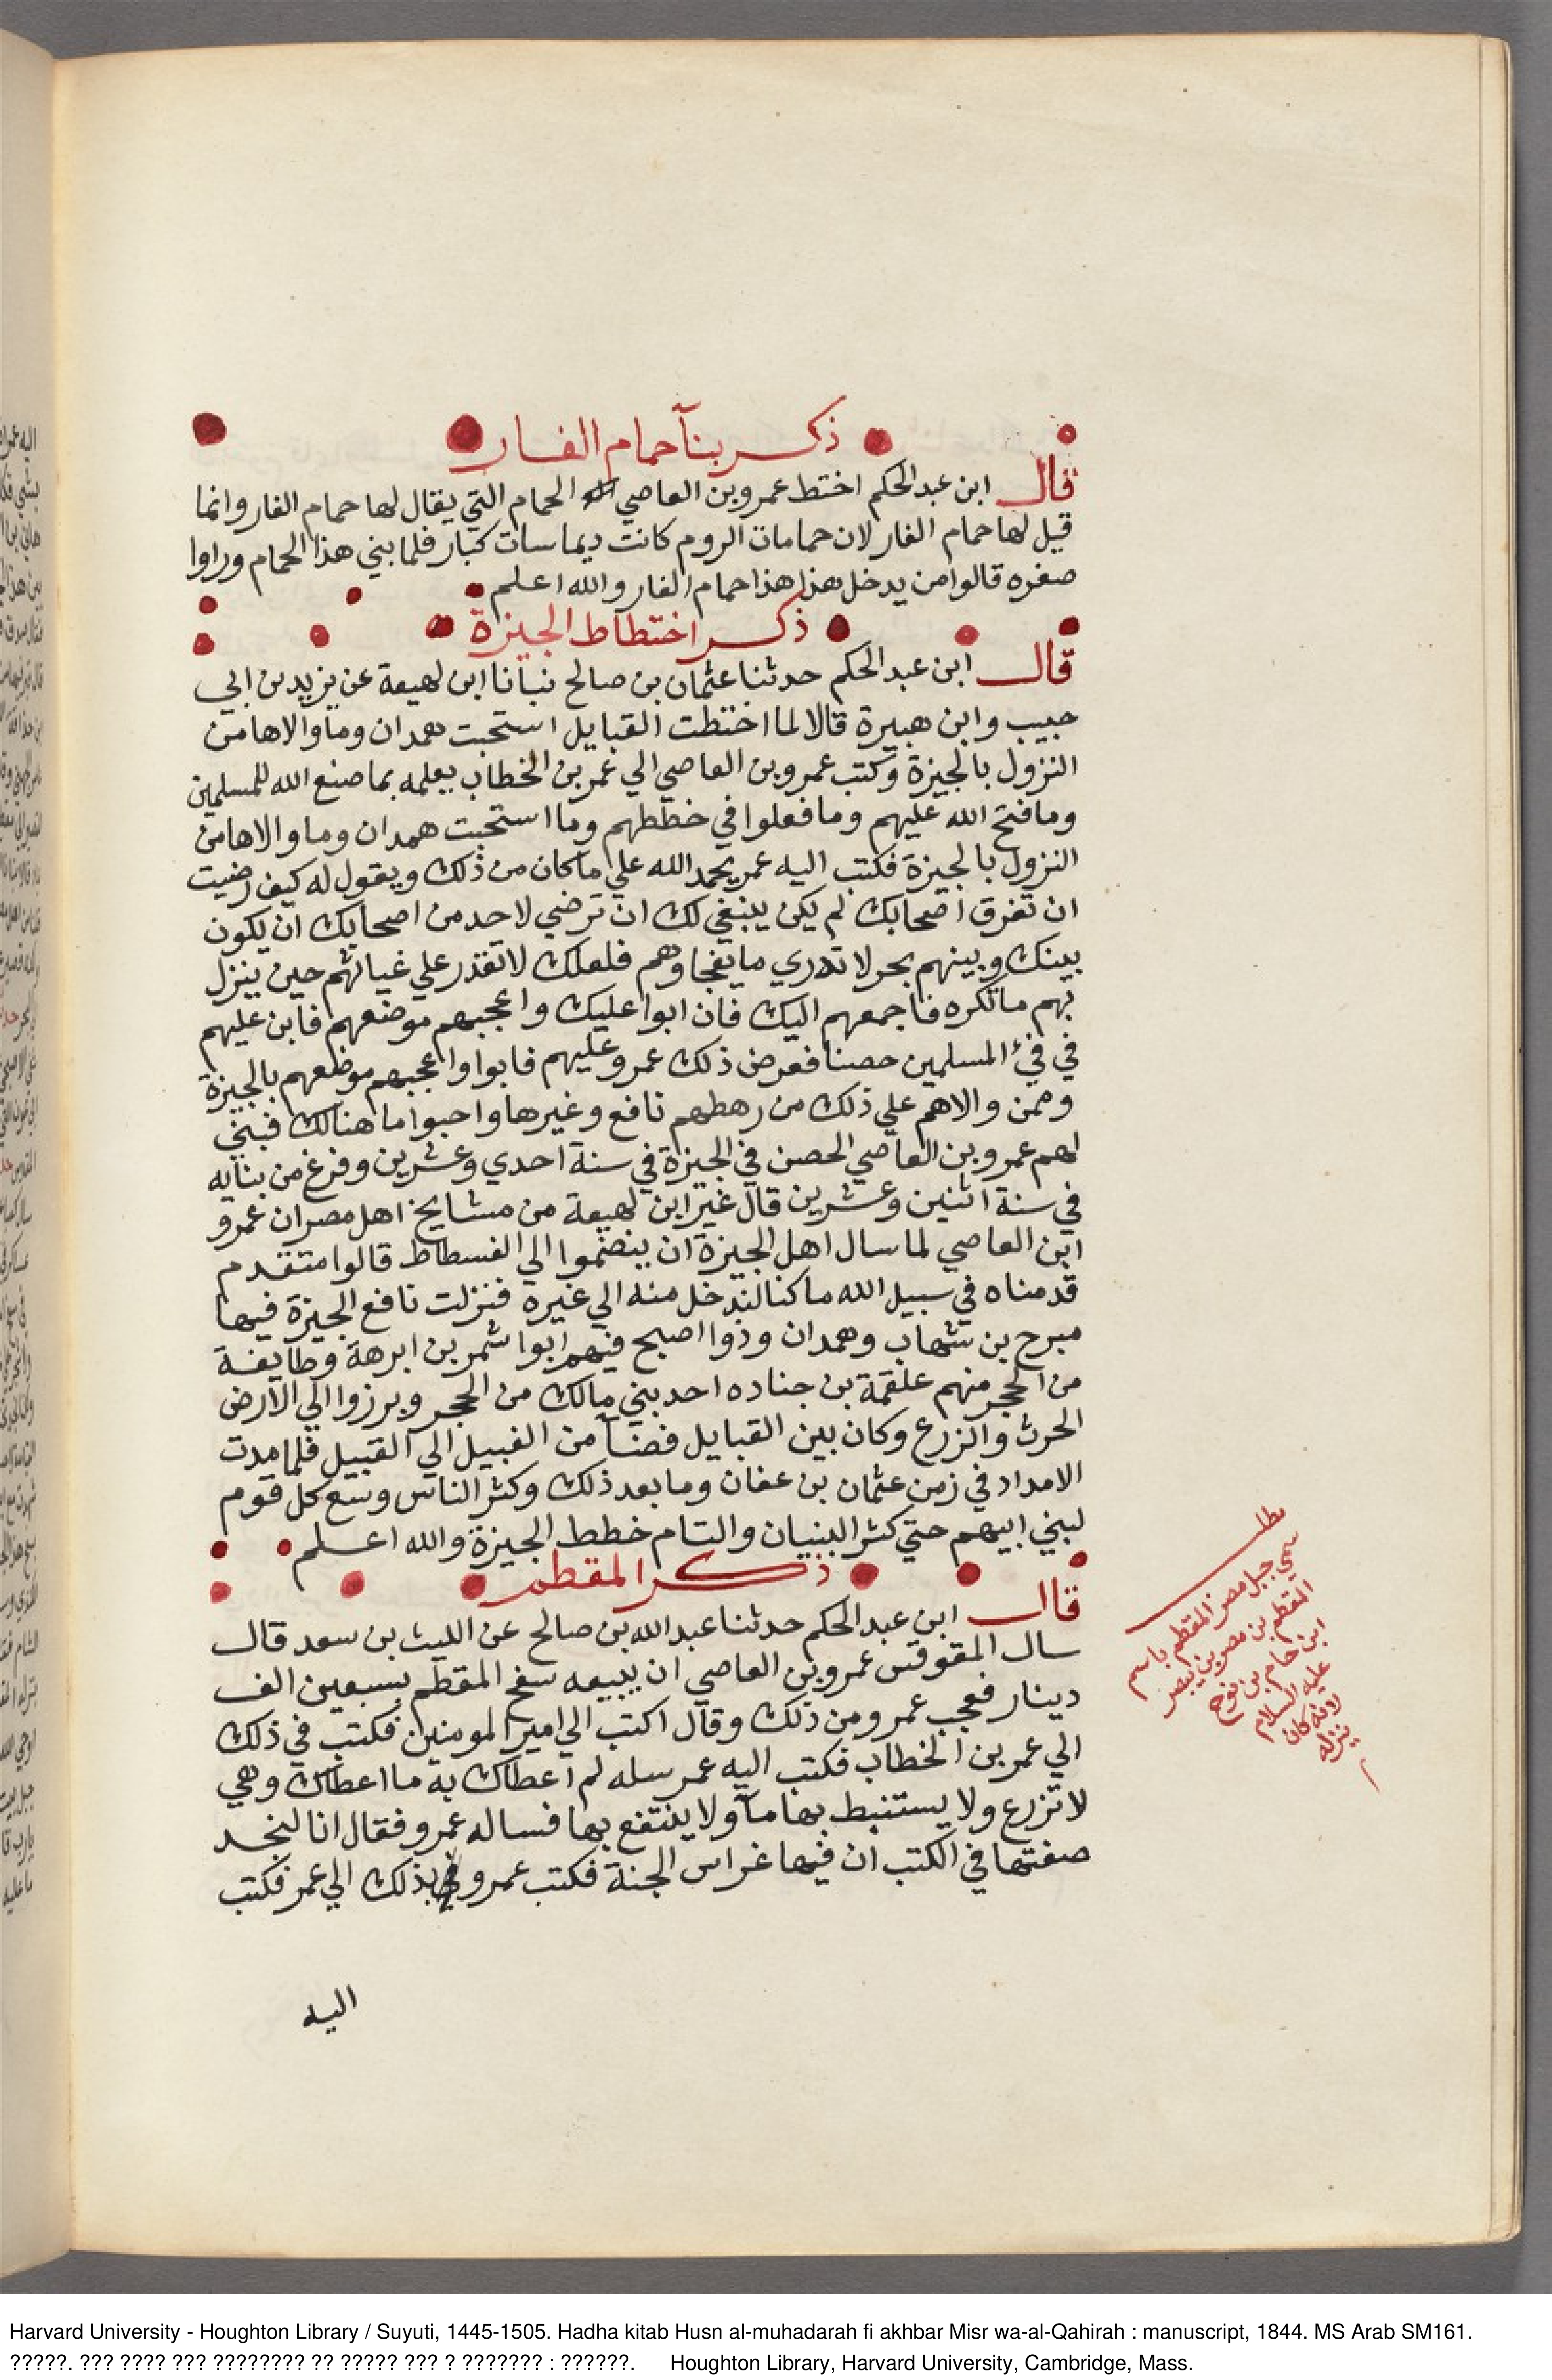 ذكر بنآ حمام الفار
قال ابن عبد الحكم اختط عمرو بن العاصي الحمام التي يقال لها حمام الفار وانما
قيل لها حمام الفار لان حمامات الروم كانت ديماسات كبار فلما بني هذا الحمام وراوا
صغره قالوا من يدخل هذا هذا حمام الفار والله اعلم
ذكر اختطاط الجيزة
قال ابن عبد الحكم حدثنا عثمان بن صالح نبانا ابن لهيعة عن يزيد بن ابي
حبيب وابن هبيرة قالا لما اختطت القبايل استحبت همدان وما والاها من
النزول بالجيزة وكتب عمرو بن العاصي الي عمر بن الخطاب يعلمه بما صنع الله للمسلمين
وما فتح الله عليهم وما فعلوا في خططهم وما استحبت همدان وما والاها من
النزول بالجيزة فكتب اليه عمر يحمد الله علي ما كان من ذلك ويقول له كيف رضيت
ان تفرق اصحابك لم يكن ينبغي لك ان ترضي لاحد من اصحابك ان يكون
بينك وبينهم بحر لا تدري ما يفجاوهم فلعلك لا تقدر علي غياثهم حين ينزل
بهم ما تكره فاجمعهم اليك فان ابوا عليك واعجبهم موضعهم فابن عليهم
في فئ المسلمين حصنا فعرض ذلك عمرو عليهم فابوا واعجبهم موظعهم بالجيزة
وممن والاهم علي ذلك من رهطهم نافع وغيرها واحبوا ما هنالك فبني
لهم عمرو بن العاصي الحصن في الجيزة في سنة احدي وعشرين وفرغ من بنايه
في سنة اثنين وعشرين قال غير ابن لهيعة من مشايخ اهل مصر ان عمرو
ابن العاصي لما سال اهل الجيزة ان ينضموا الي الفسطاط قالوا متقدم
قدمناه في سبيل الله ما كنا لندخل منه الي غيره فنزلت نافع الجيزة فيها
مبرح بن شهاب وهمدان وذوا اصبح فيهم ابوا شمر بن ابرهة وطايفة
من الحجر منهم علقمة بن جناده احد بني مالك من الحجر وبرزوا الي الارض
الحرث والزرع وكان بين القبايل فضآ من القبيل الي القبيل فلما مدت
الامداد في زمن عثمان بن عفان وما بعد ذلك وكثر الناس وسع كل قوم
لبني ابيهم حتي كثر البنيان والتام خطط الجيزة والله اعلم
ذكر المقطم
قال ابن عبد الحكم حدثنا عبد الله بن صالح عن الليث بن سعد قال
سال المقوقس عمرو بن العاصي ان يبيعه سفح المقطم بسبعين الف
دينار فعجب عمرو من ذلك وقال اكتب الي امير المومنين فكتب في ذلك
الي عمر بن الخطاب فكتب اليه عمر سله لم اعطاك به ما اعطاك وهي
لا تزرع ولا يستنبط بها مآ ولا ينتفع بها فساله عمرو فقال انا لنجد
صفتها في الكتب ان فيها غراس الجنة فكتب عمرو بذلك الي عمر فكتب
اليه
مطلب
سمي جبل مصر المقطم باسم
المقطم بن مصر بن بيصر
ابن حام بن نوح
عليه السلام
لانه كان
ينزله
Harvard University - Houghton Library / Suyuti, 1445-1505. Hadha kitab Husn al-muhadarah fi akhbar Misr wa-al-Qahirah : manuscript, 1844. MS Arab SM161.
?????. ??? ???? ??? ???????? ?? ????? ??? ? ??????? : ??????. Houghton Library, Harvard University, Cambridge, Mass.